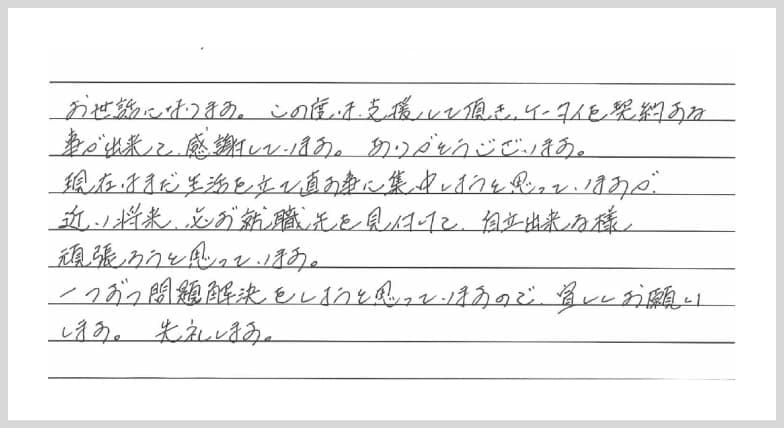 お世話になります。この度は支援して頂き、ケータイを契約する
事が出来て、感謝しています。ありがとうございます。
現在はまだ生活を立て直す事に集中しようと思っていますが、
近い将来、必ず就職先を見付けて、自立出来る様、
頑張ろうと思っています。
一つずつ問題解決をしようと思っていますので、宜しくお願い
します。失礼します。